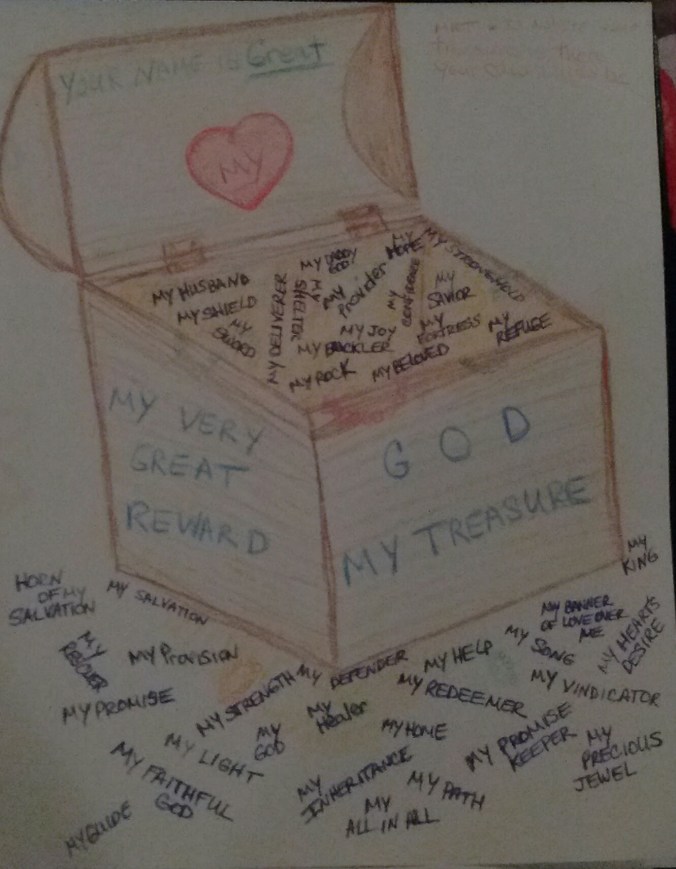 YOUR NAME IS Great
MY
MY HUSBAND
MY SHIELD
MY
SWORD
MY DELIVERER
MY
SHELTER
MY DADDY
GOD
MY
Provider
MY
HOPE
MY STRONGHOLD
MY
CONFIDENCE
MY
SAVIOR
MY JOY
MY BUCKLER
MY
FORTRESS
MY
REFUGE
MY ROCK
MY BELOVED
MY VERY
GREAT
REWARD
GOD
MY TREASURE
HORN
OF MY
SALVATION
MY SALVATION
MY
KING
MY BANNER
OF LOVE OVER
ME
MY HEARTS
DESIRE
MY
MY Provision
MY STRENGTH
MY DEFENDER
MY HELP
MY SONG
MY VINDICATOR
MY PROMISE
MY REDEEMER
MY
Healer
MY
GOD
MY LIGHT
MY HOME
MY PROMISE
KEEPER
MY
PRECIOUS
JEWEL
MY FAITHFUL
GOD
MY
INHERITANCE
MY PATH
MY
ALL IN ALL
MY GUIDE